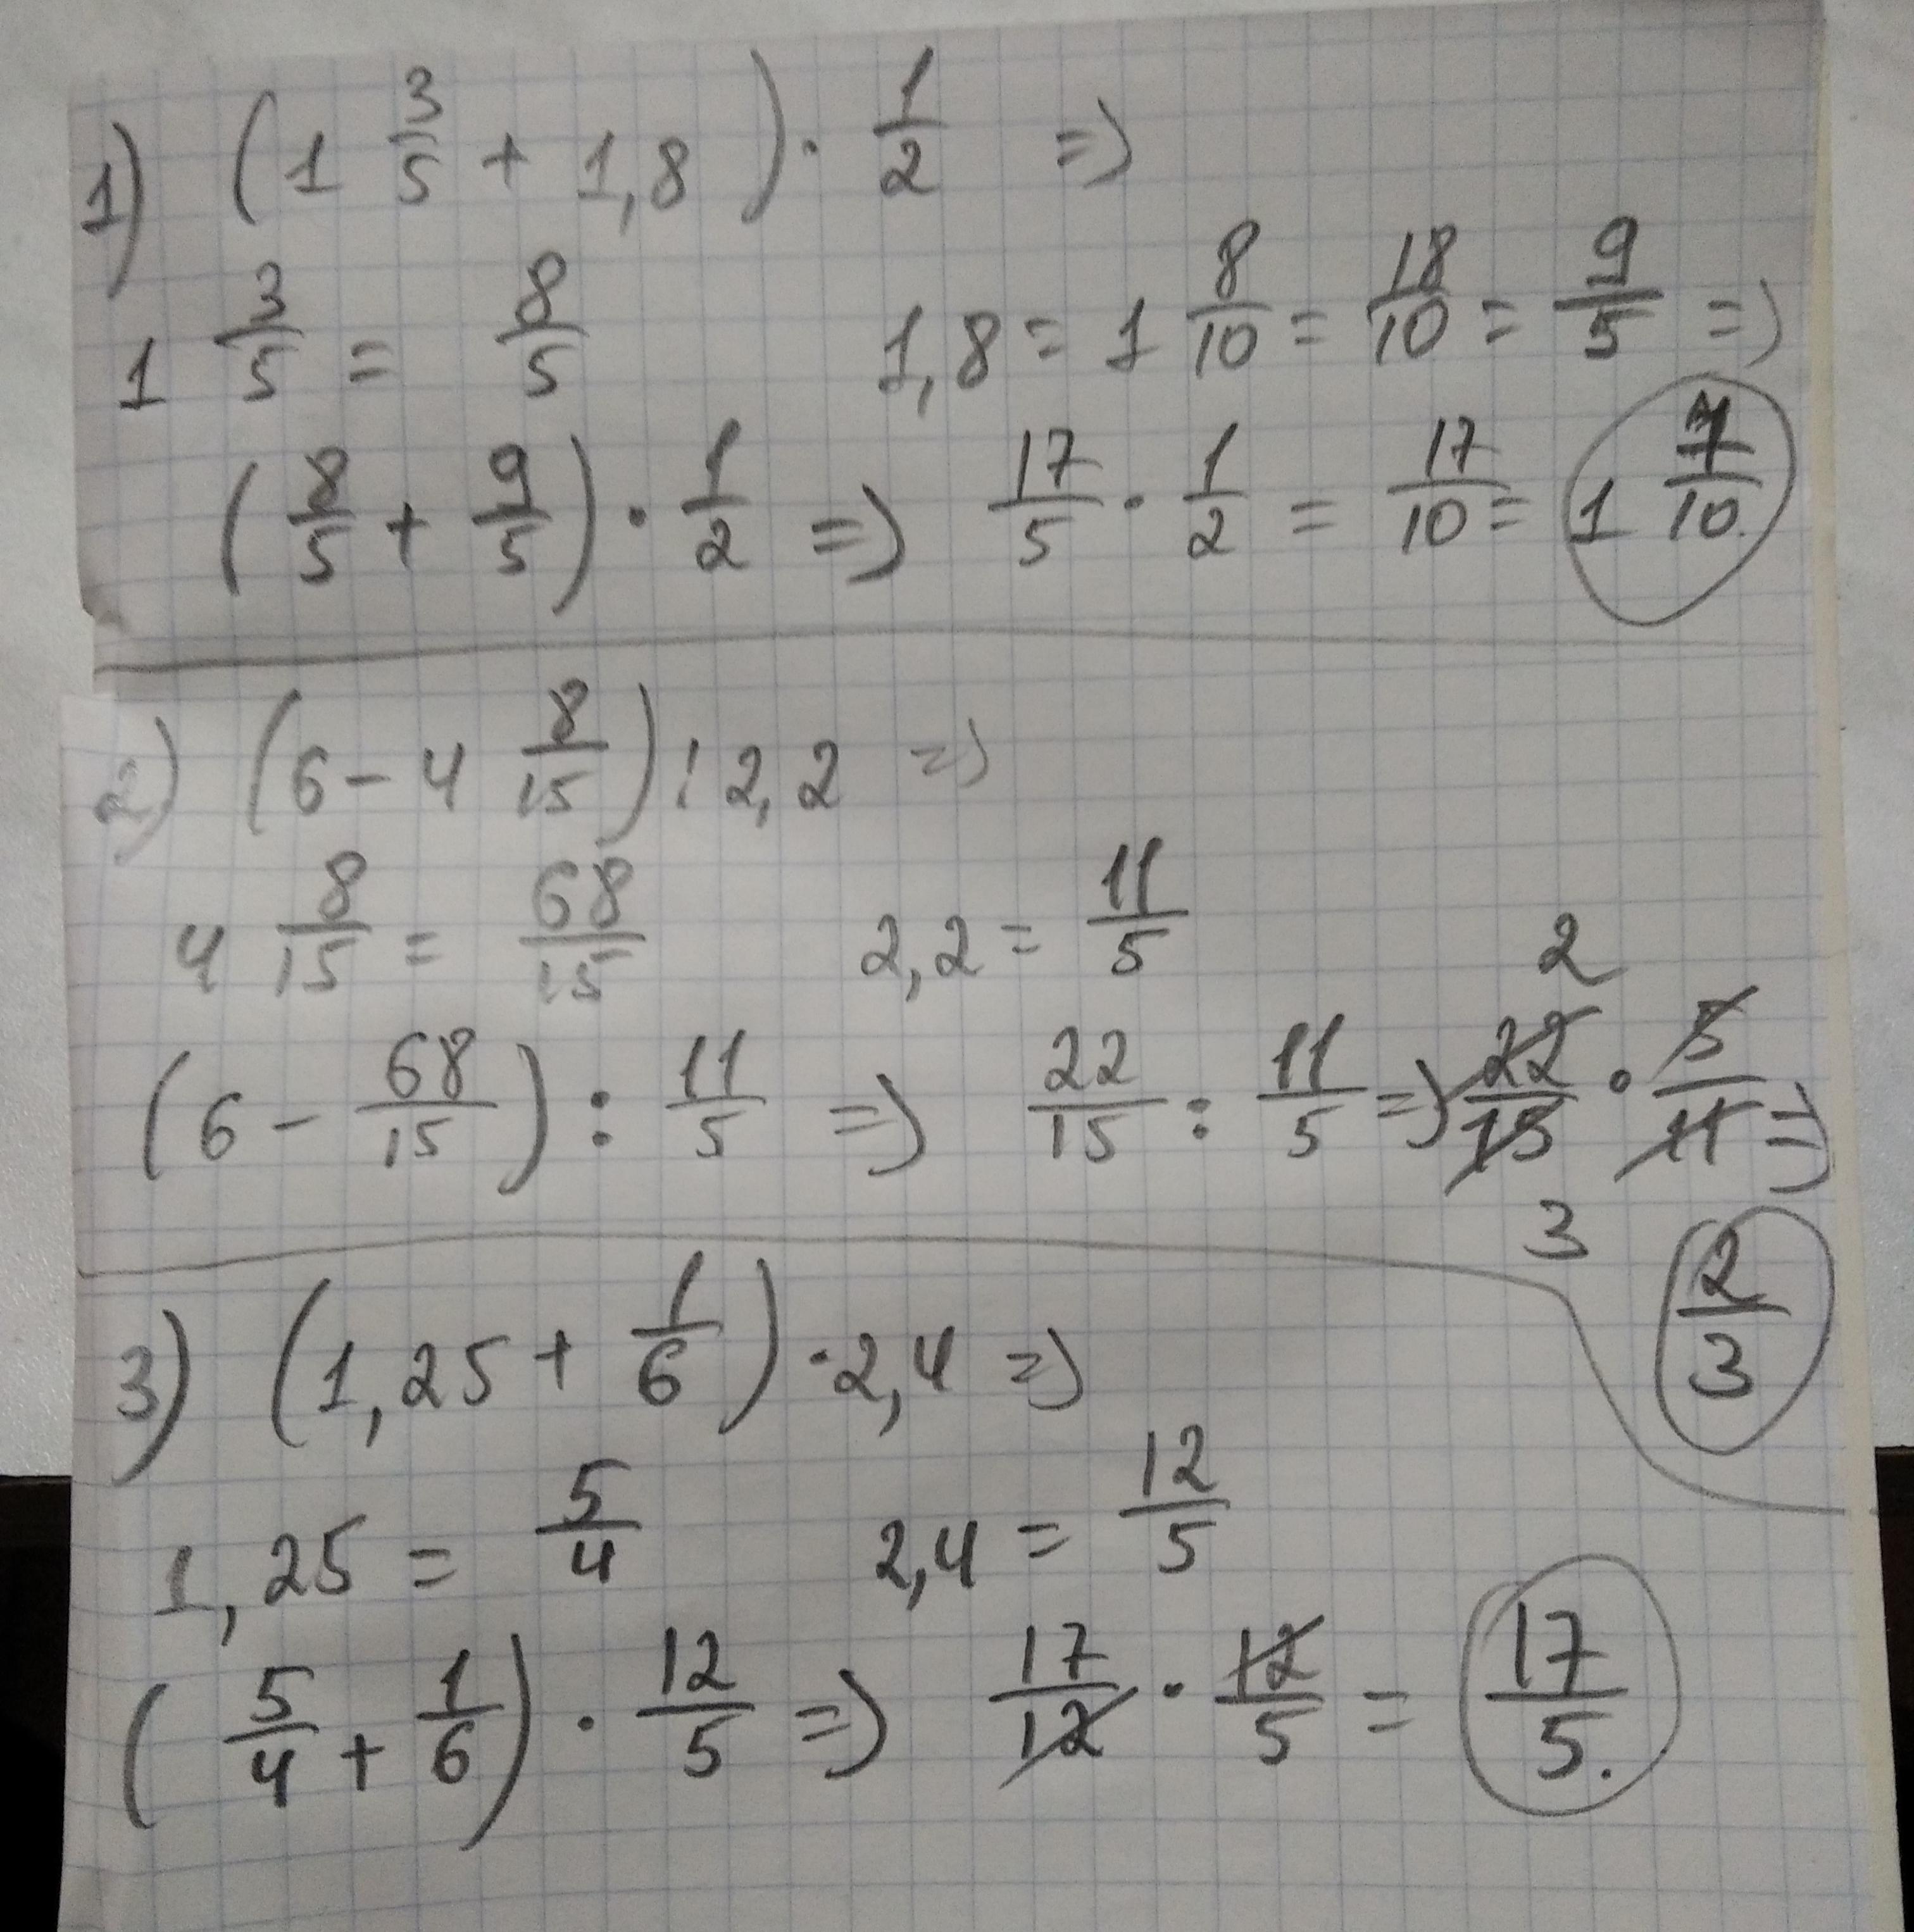 1) (1 3/5 + 1,8) · 1/2 =>
1 3/5 = 8/5   1,8 = 1 8/10 = 18/10 = 9/5 =>
(8/5 + 9/5) · 1/2 => 17/5 · 1/2 = 17/10 = 1 7/10.
2) (6 - 4 8/15) : 2,2 =>
4 8/15 = 68/15   2,2 = 11/5
2
(6 - 68/15) : 11/5 => 22/15 : 11/5 => 22/15 · 5/11 =>
3
2/3
3) (1,25 + 1/6) · 2,4 =>
1,25 = 5/4   2,4 = 12/5
(5/4 + 1/6) · 12/5 => 17/12 · 12/5 = 17/5.